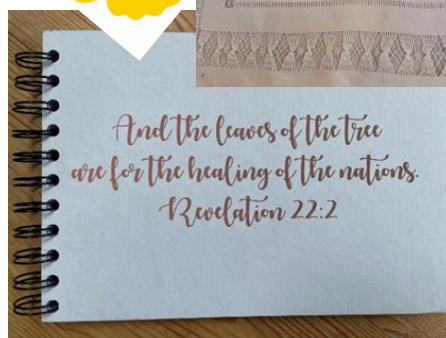 And the leaves of the tree
are for the healing of the nations.
Revelation 22:2